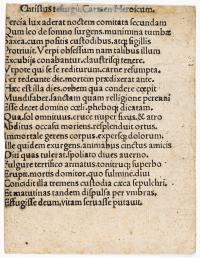 Tercia lux aderat noctem comitata secundam
Quum leo de somno surgens munimina tumbæ
Saxea cum positis custodibus, atq; sigillis
Prorruit. Verpi obsessum nam talibus illum
Excubijs conabantur, claustrisq; tenere.
Vtpote qui se se rediturum, carne resumpta,
Ter redeunte die, mortem prædixerat ante.
Hæc est illa dies, orbem qua condere cœpit
Mundifaber, sanctam quam relligione pereanni
Esse decet domino cœli, phebóq; dicatam.
Qua, sol omnituus, cruce nuper fixus, & atro
Abditus occasu moriens, resplenduit ortus.
Immortale gerens corpus, expersq; dolorum.
Ille quidem exurgens, animabus cinctus amicis
Diti quas tulerat, spoliato diues auerno.
Fulgure terrifico armatus, tonitruq; superbo
Erupit, mortis domitor, quo fulmine, diui
Concidit illa tremens custodia cæca sepulchri.
Et matutinas tandem dispulsa per vmbras,
Effugisse deum, vitam seruasse putauit.